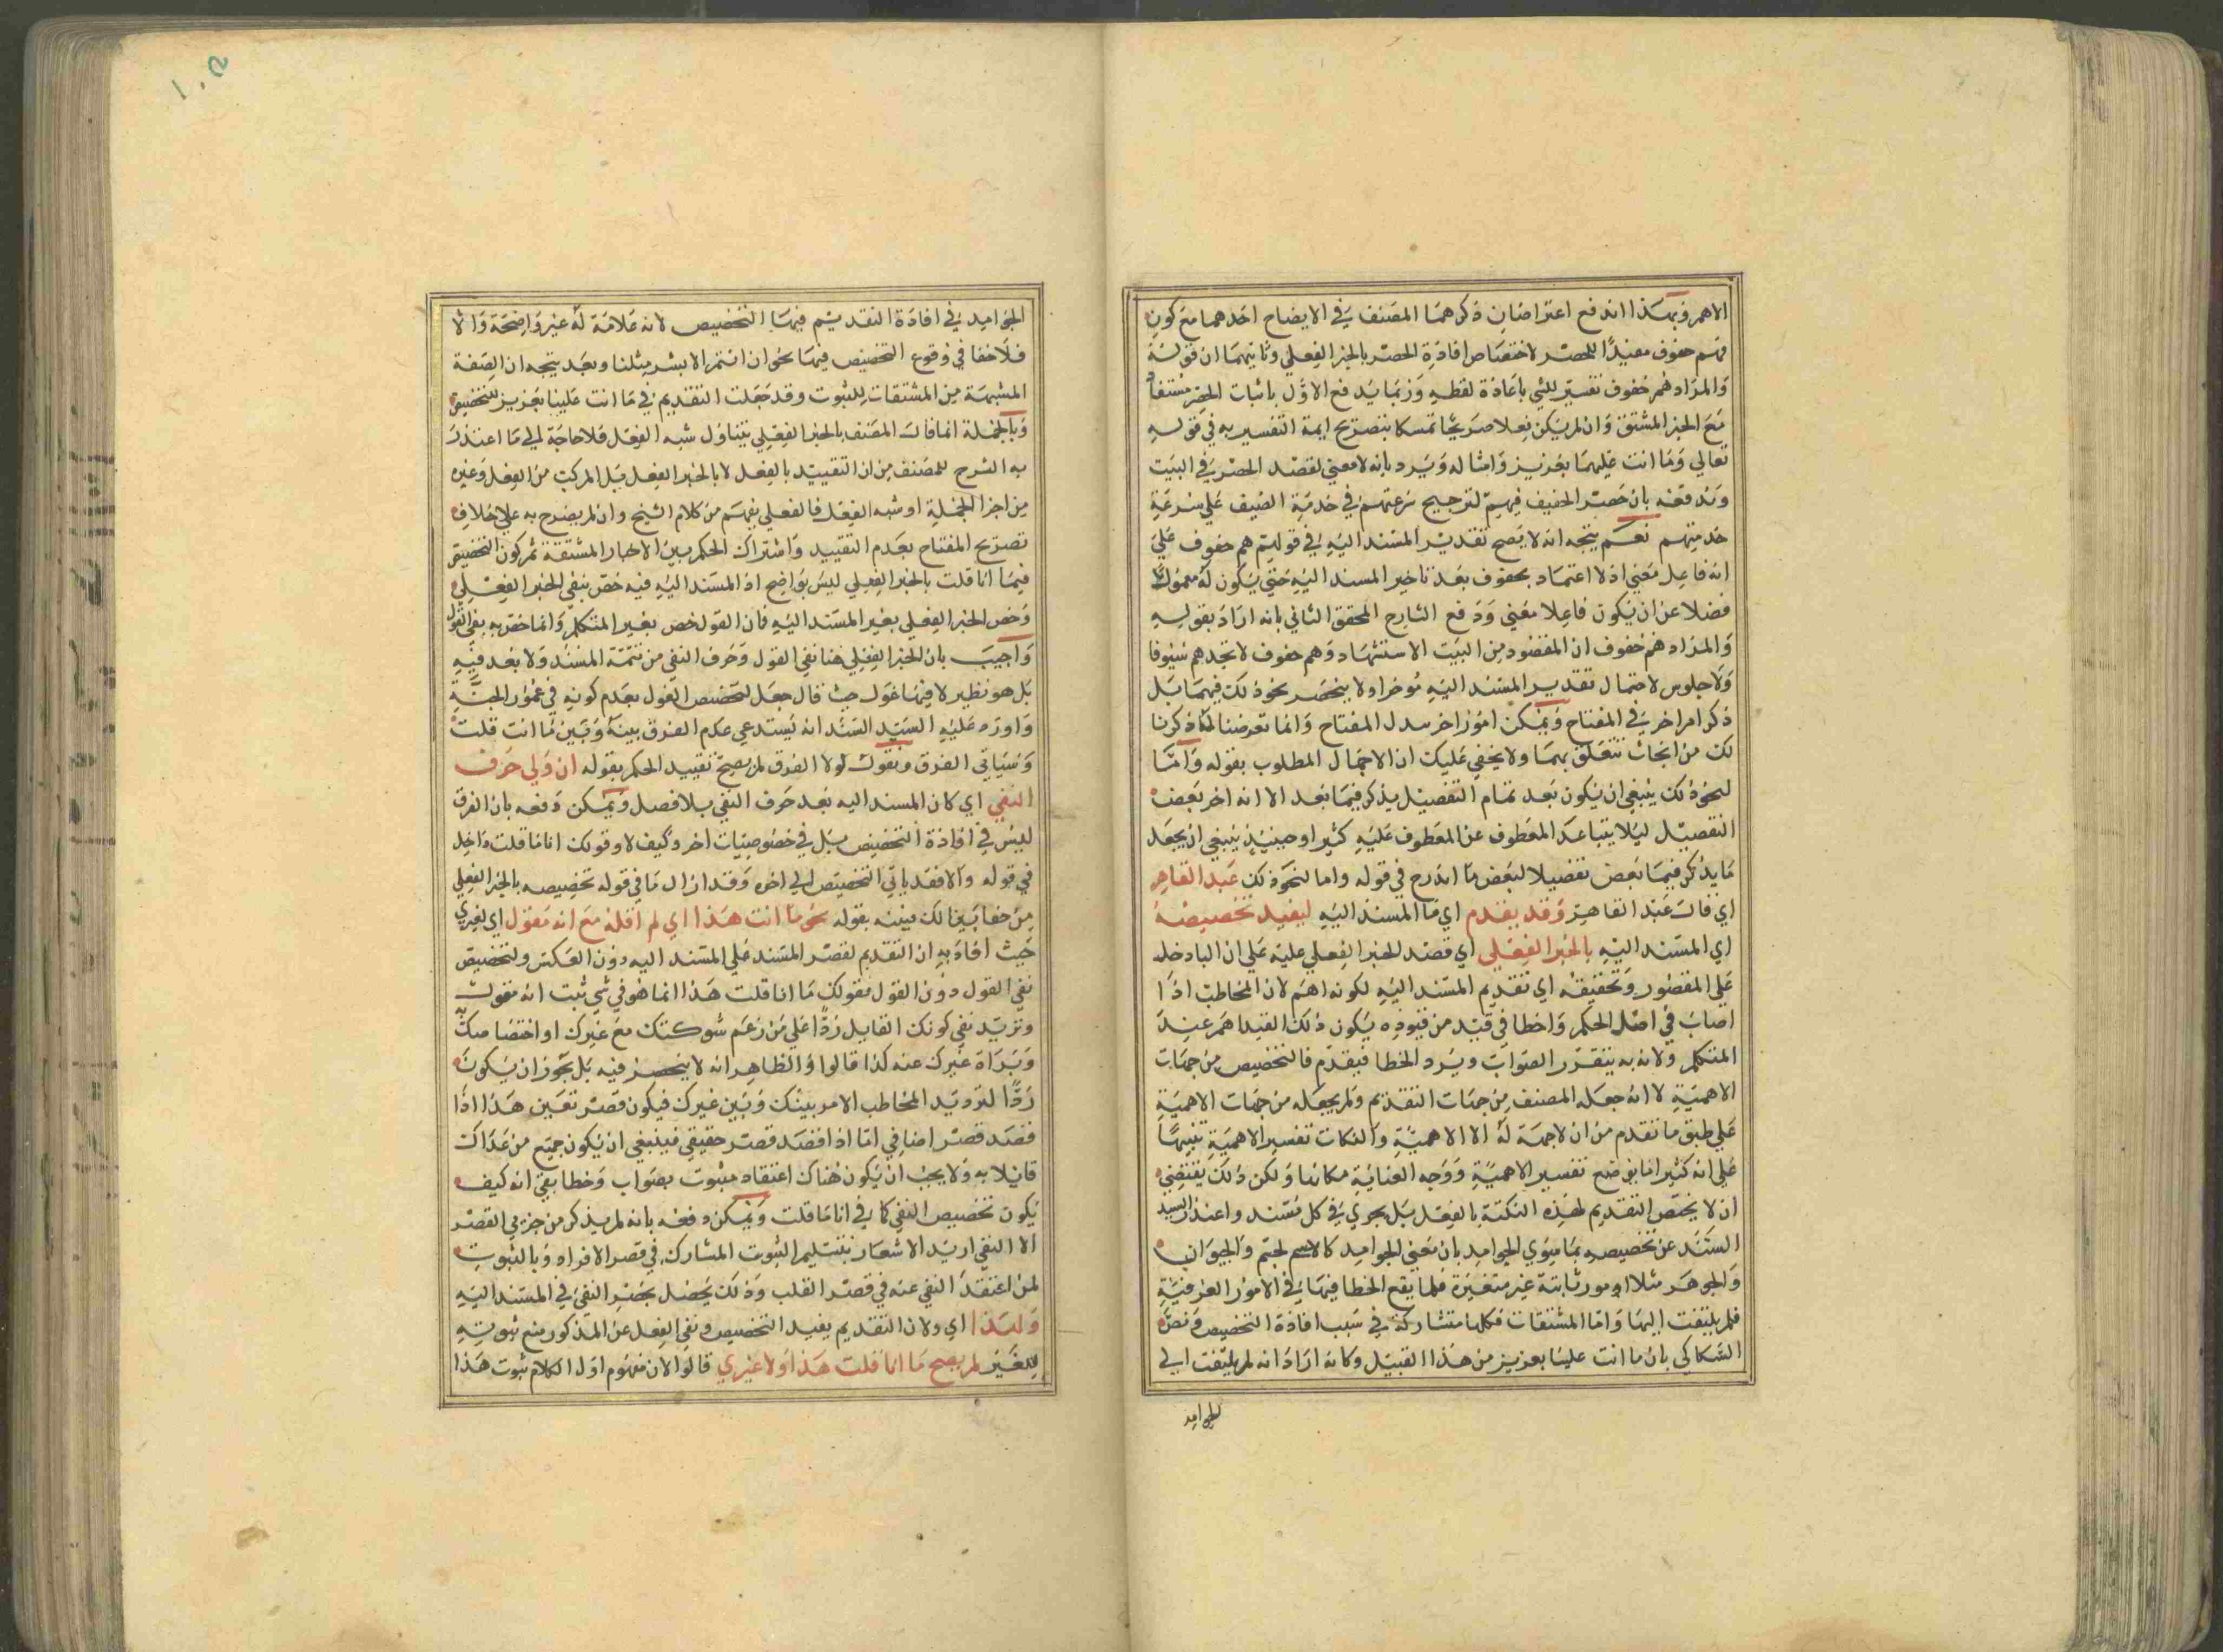 الاهم وبهذا اندفع اعتراضان ذكرهما المصنف في الايضاح احدهما مع كون
فهم حفوف مفيدًا للحصر لاختصاص افادة الحصر بالخبر الفعلي وثانيهما ان قوله
والمراد هم خفوف تفسير للشي باعادة لفظه وربما يدفع الاول باثبات الحصر مستفادا
مع الخبر المشتق وان لم يكن فعلا صريحًا تمسكا بتصريح ايمة التفسير به في قوله
تعالي وما انت عليهما بعزيز وامثاله ويرد بانه لا معني لقصد الحصر في البيت
وندفعه بان حصر الخفيف فيهم لترجيح سرعتهم في خدمة الضيف علي سرعة
خدمتهم نعم يتجه انه لا يصح تقدير المسند اليه في قولهم هم حفوف علي
انه فاعل معني اذ لا اعتماد بحفوف بعد تاخير المسند اليه حتي يكون له معمولا
فضلا عن ان يكون فاعلا معني ودفع الشارح المحقق الثاني بانه اراد بقوله
والمراد هم خفوف ان المقصود من البيت الاستشهاد وهم حفوف لا تجدهم سيوفا
ولا جلوس لاحتمال تقدير المسند اليه موخرا ولا ينحصر نحو ذلك فيهما بل
ذكر امر اخر في المفتاح ويمكن امور اخر سدل المفتاح وانما تعرضنا لما ذكرنا
لك من ابحاث تتعلق بهما ولا يخفي عليك ان الاجمال المطلوب بقوله واما
لنحو ذلك ينبغي ان يكون بعد تمام التفصيل يذكر فيما بعد الا انه اخر بعض
التفصيل ليلا يتباعد المعطوف عن المعطوف عليه كثيرا وحينيذ ينبغي ان يجعل
ما يذكر فيما بعض تفصيلا لبعض ما اندرج في قوله واما لنحو ذلك عبد القاهر
اي قال عبد القاهر وقد يقدم اي ما المسند اليه ليفيد تخصيصه
اي المسند اليه بالخبر الفعلي اي قصد للخبر الفعلي عليه علي ان البا دخله
علي المقصور وتحقيقه اي تقديم المسند اليه لكونه اهم لان المخاطب اذا
اصاب في اصل الحكم واخطا في قيد من قيوده يكون ذلك القيد اهم عند
المتكلم ولانه به يتقرر الصواب ويرد الخطا فيقدم فالتخصيص من جهات
الاهمية لا انه جعله المصنف من جهات التقديم ولم يجعله من جهات الاهمية
علي طبق ما تقدم من ان لا جهة له الا الاهمية والنكات تفسير الاهمية تنبيهًا
علي انه كثيرا ما يوضع تفسير الاهمية ووجه العناية مكانها ولكن ذلك يقتضي
ان لا يختص التقديم لهذه النكتة بالفعل بل يجري في كل مسند واعتذر السيد
السند عن تخصيصه بما سوي الجوامد بان معني الجوامد كالاسم لجتم والحيوان
والجوهر مثلا امور ثابتة غير متغيرة فلما يقع الخطا فيها في الامور العرفية
فلم يلتفت اليها واما المشتقات فكلها متشاركة في سبب افادة التخصيص ونص
السكاكي بان ما انت علينا بعزيز من هذا القبيل وكانه اراد انه لم يلتفت الي
الجوامد
الجوامد في افادة التقديم فيها التخصيص لانه علامة له غير واضحة والا
فلا خفا في وقوع التخصيص فيها نحو ان انتم الا بشر مثلنا وبعد يتجه ان الصفة
المشبهة من المشتقات للثبوت وقد جعلت التقديم في ما انت علينا بعزيز للتخصيص
وبالجملة انما قال المصنف بالخبر الفعلي يتناول شبه الفعل فلا حاجة الي ما اعتذر
به الشرح للمصنف من ان التقييد بالفعل لا بالخبر الفعل بل المركب من الفعل وغيره
من اجزا الجملة او شبه الفعل فالفعلي يفهم من كلام الشيخ وان لم يصرح به علي خلاف
تصريح المفتاح بعدم التقييد واشتراك الحكم بين الاخبار المشتقة ثم كون التخصيص
فيما انا قلت بالخبر الفعلي ليس بواضح اذ المسند اليه فيه خص بنفي الخبر الفعلي
وخص الخبر الفعلي بغير المسند اليه فان القول خص بغير المتكلم وانما خص به نفي القول
واجيب بان الخبر الفعلي هنا نفي القول وحرف النفي من تتمة المسند ولا بعد فيه
بل هو نظير لا فيها غول حيث قال جعل لتخصيص الغول بعدم كونه في خمور الجنة
واورد عليه السيد السند انه يستدعي عدم الفرق بينه وبين ما انت قلت
وسياتي الفرق ونقول لولا الفرق لم يصح تقييد الحكم بقوله ان ولي حرف
النفي اي كان المسند اليه بعد حرف النفي بلا فصل ويمكن دفعه بان الفرق
ليس في افادة التخصيص بل في خصوصيات اخر وكيف لا وقولك انا ما قلت داخل
في قوله والا فقد ياتي التخصيص الي اخره وقد ازال ما في قوله تخصيصه بالخبر الفعلي
من خفا بين لك مبينه بقوله نحو ما انت هذا اي لم اقله مع انه مقول اي لغيري
حيث افاد به ان التقديم لقصر المسند علي المسند اليه دون العكس ولتخصيص
نفي القول دون القول فقولك ما انا قلت هذا انما هو في شي ثبت انه مقول
وتريد نفي كونك القايل ردًا علي من زعم شركتك مع غيرك او اختصاصك
وبراة غيرك عنه كذا قالوا والظاهر انه لا ينحصر فيه بل يجوز ان يكون
ردًا لترديد المخاطب الامر بينك وبين غيرك فيكون قصر تعيين هذا اذا
قصد قصر اضافي اما اذا قصد قصر حقيقي فينبغي ان يكون جميع من عداك
قايلا به ولا يجب ان يكون هناك اعتقاد مثبوت بصواب وخطا بقي انه كيف
يكون تخصيص النفي كما في انا ما قلت ويمكن دفعه بانه لم يذكر من جزيي القصر
الا النفي اريد الاشعار بتسليم الثبوت المشارك في قصر الافراد وبالثبوت
لمن اعتقد النفي عنه في قصر القلب وذلك يحصل بحصر النفي في المسند اليه
ولهذا اي ولان التقديم يفيد التخصيص ونفي الفعل عن المذكور مع ثبوته
للغير لم يصح ما انا قلت هذا ولا غيري قالوا لان مفهوم اول الكلام ثبوت هذا